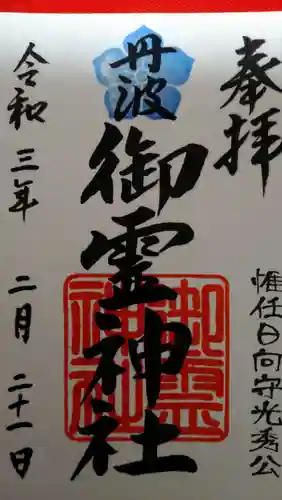 奉拝
惟任日向守光秀公
丹波
御霊神社
御霊神社
令和三年 二月 二十一日